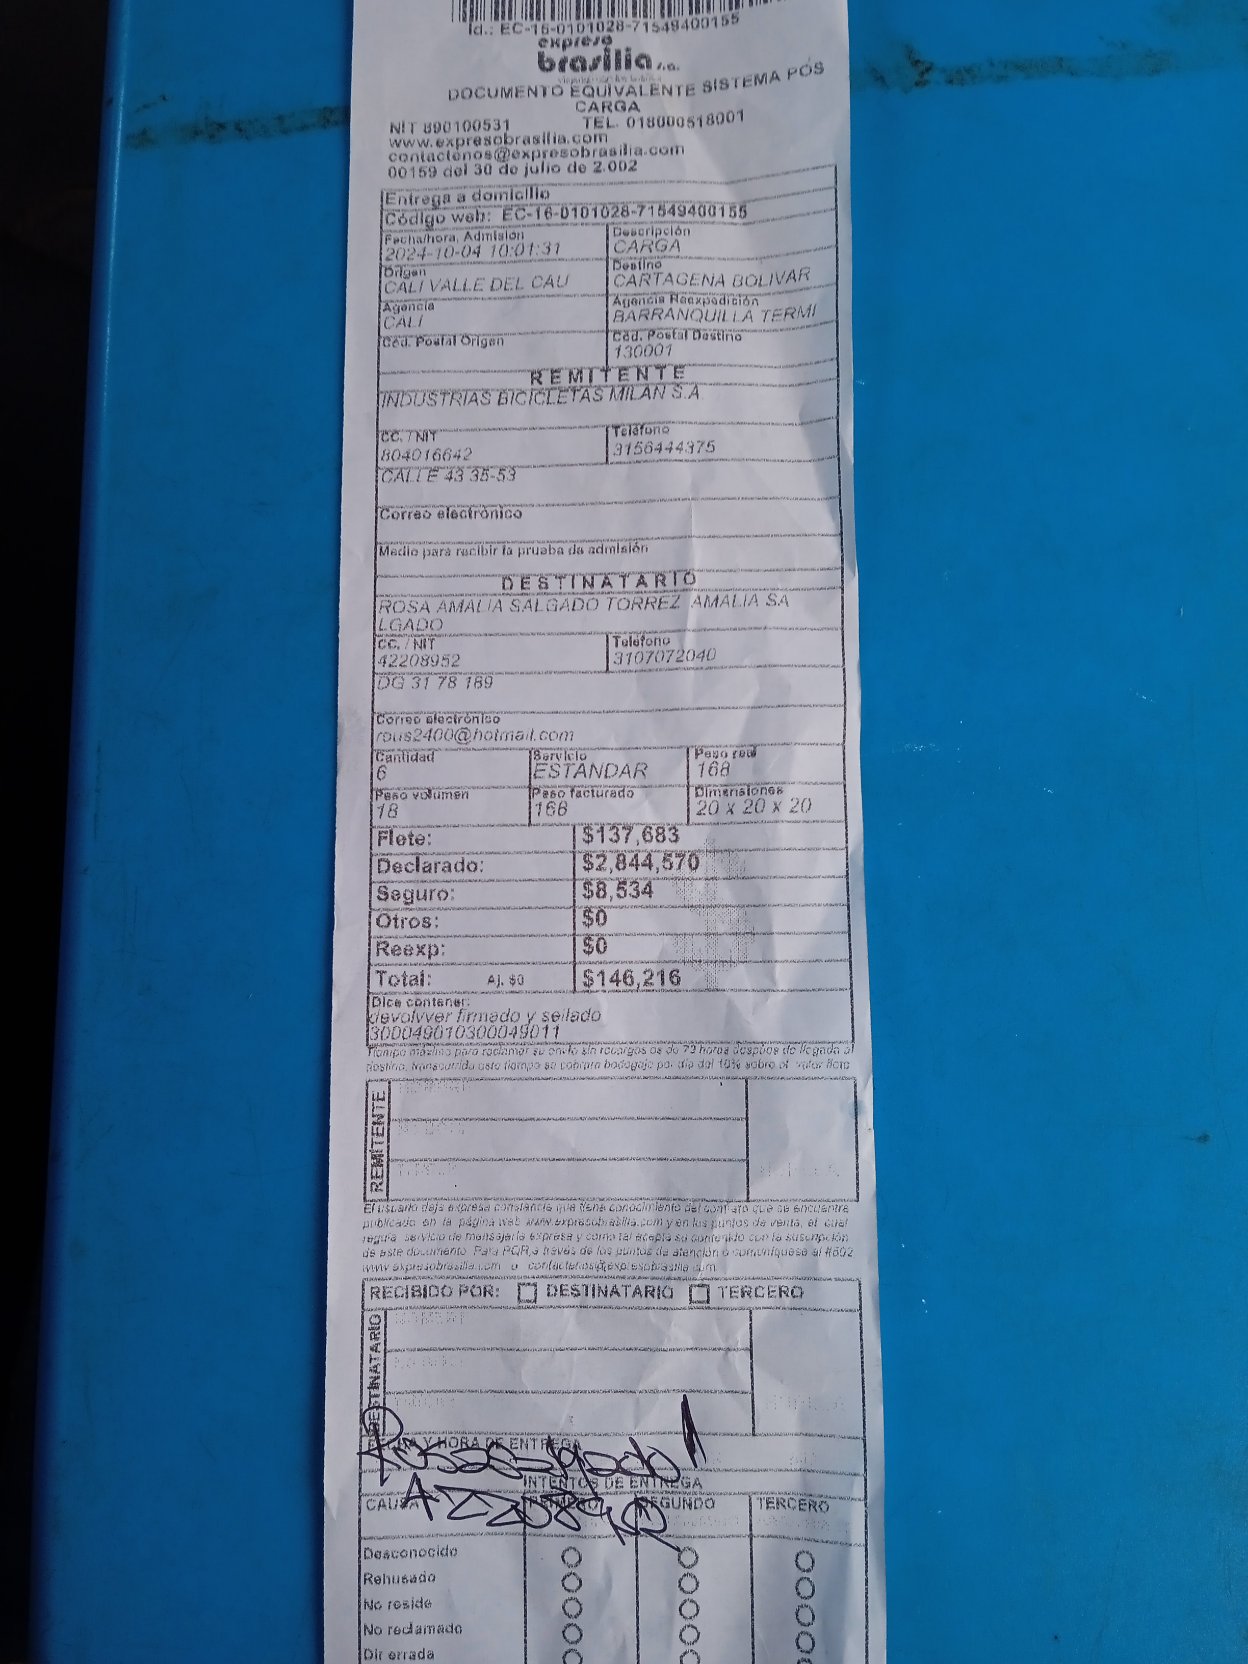 Id.: EC-16-0101028-71549400155
expreso
brasilia s.a.
DOCUMENTO EQUIVALENTE SISTEMA POS
CARGA
NIT 890100531 TEL. 018000518001
www.expresobrasilia.com
contactenos@expresobrasilia.com
00159 del 30 de julio de 2.002
Entrega a domicilio
Código web: EC-16-0101028-71549400155
Fecha/hora, Admisión Descripción
2024-10-04 10:01:31 CARGA
Origen Destino
CALI VALLE DEL CAU CARTAGENA BOLIVAR
Agencia Agencia Reexpedición
CALI BARRANQUILLA TERMI
Cód. Postal Origen Cód. Postal Destino
130001
REMITENTE
INDUSTRIAS BICICLETAS MILAN S.A
CC. / NIT Teléfono
804016642 3156444375
CALLE 43 35-53
Correo electrónico
Medio para recibir la prueba de admisión
DESTINATARIO
ROSA AMALIA SALGADO TORREZ AMALIA SA
LGADO
CC. / NIT Teléfono
42208952 3107072040
DG 31 78 189
Correo electrónico
rous2400@hotmail.com
Cantidad Servicio Peso real
6 ESTANDAR 168
Peso volumen Peso facturado Dimensiones
18 168 20 x 20 x 20
Flete: $137,683
Declarado: $2,844,570
Seguro: $8,534
Otros: $0
Reexp: $0
Total: Aj. $0 $146,216
Dice contener:
devolvver firmado y sellado
300049010300049011
Tiempo máximo para reclamar su envío sin recargos es de 72 horas después de llegada al
destino, transcurrido este tiempo se cobrara bodegaje por día del 10% sobre el valor flete
REMITENTE
El usuario deja expresa constancia que tiene conocimiento del contrato que se encuentra
publicado en la página web www.expresobrasilia.com y en los puntos de venta, el cual
regula servicio de mensajería expresa y como tal acepta su contenido con la suscripción
de este documento. Para PQR a través de los puntos de atención o comuníquese al #502
www.expresobrasilia.com o contactenos@expresobrasilia.com
RECIBIDO POR: DESTINATARIO TERCERO
DESTINATARIO
Y HORA DE ENTREGA
Rosa Salgado
INTENTOS DE ENTREGA
CAUSA PRIMERO SEGUNDO TERCERO
Desconocido
Rehusado
No reside
No reclamado
Dir errada